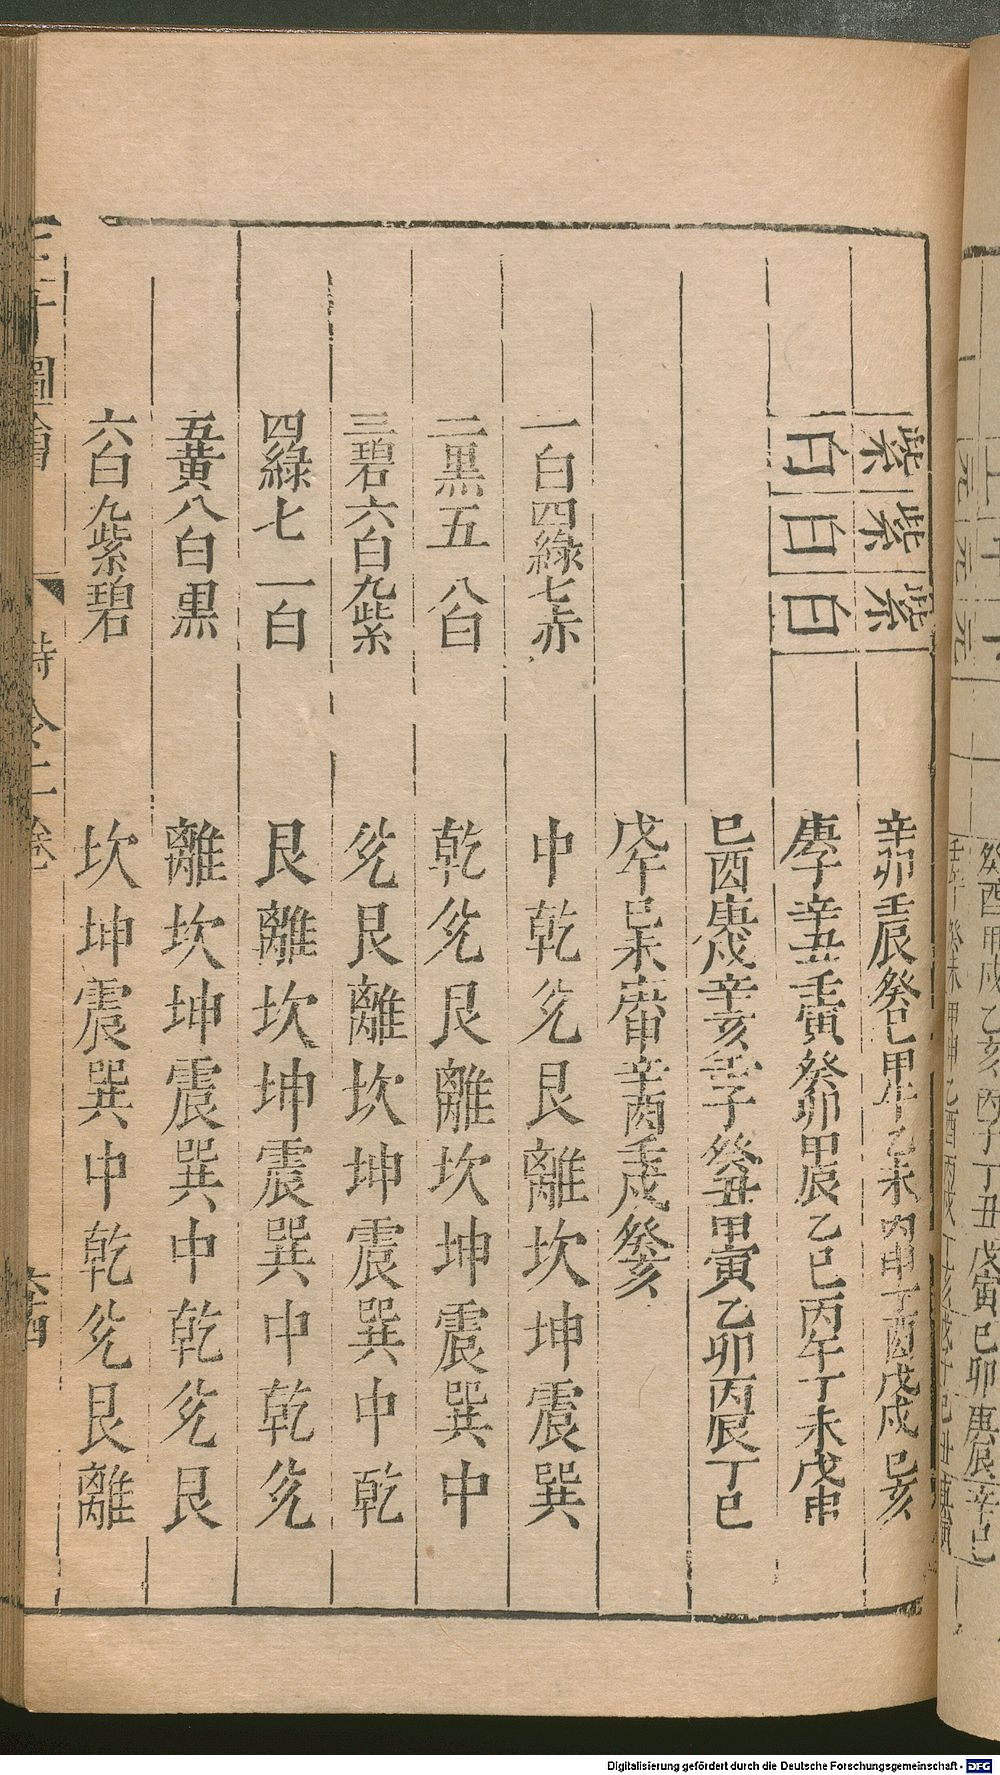 癸酉甲戌乙亥丙子丁丑戊寅己卯庚辰辛巳
壬午癸未甲申乙酉丙戌丁亥戊子己丑庚寅
紫紫紫 辛卯壬辰癸巳甲午乙未丙申丁酉戊戌己亥
白白白 庚子辛丑壬寅癸卯甲辰乙巳丙午丁未戊申
巳酉庚戌辛亥壬子癸丑甲寅乙卯丙辰丁巳
戊午巳未庚申辛酉壬戌癸亥
一白四綠七赤 中乾兊艮離坎坤震巽
二黒五 八白 乾兊艮離坎坤震巽中
三碧六白九紫 兊艮離坎坤震巽中乾
四綠七 一白 艮離坎坤震巽中乾兊
五黄八白黒 離坎坤震巽中乾兊艮
六白九紫碧 坎坤震巽中乾兊艮離
三才圖會 時令二卷
Digitalisierung gefördert durch die Deutsche Forschungsgemeinschaft - DFG